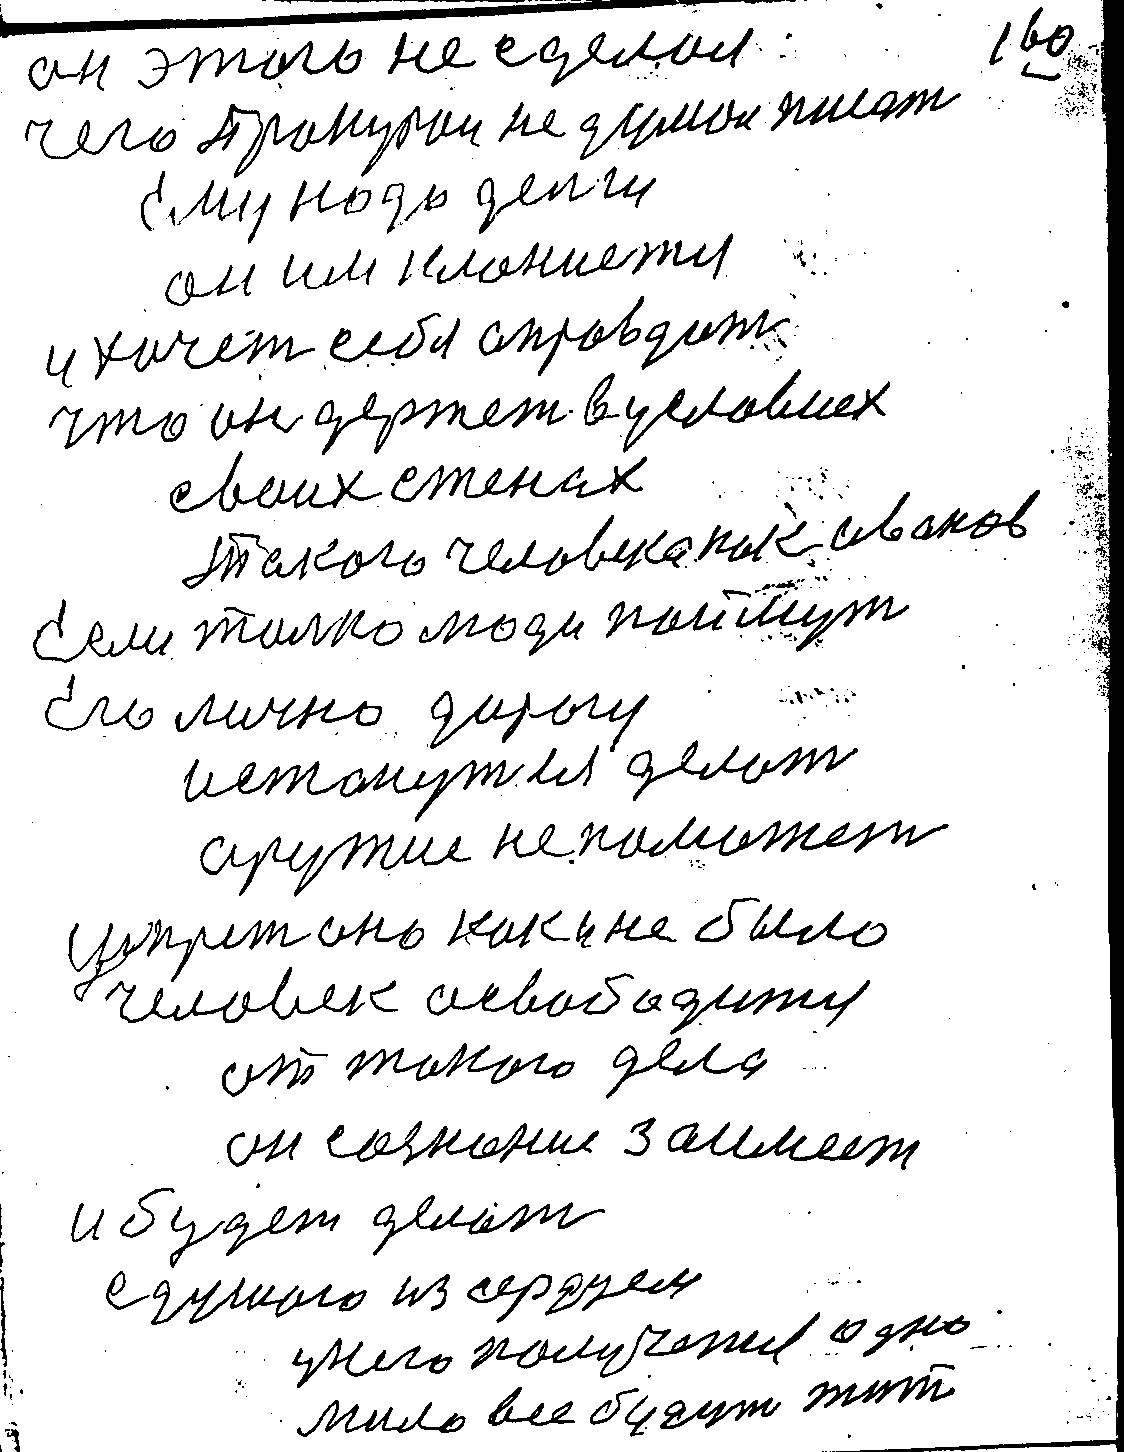 160
он этого не сделал
чего прокурои не думаи писат
Ему надо делги
он им кланиетя
и хочет себя оправдат
что он держет в условиех
своих стенах
такого человека как иванов
Если толко люди поймут
Его лично дорогу
истанут ея делат
оружие не поможет
умрет оно как и не было
человек освободитя
от такого дела
он сознание заимеет
и будет делат
с душою из сердцем
унего получения одно
мило все будут жит